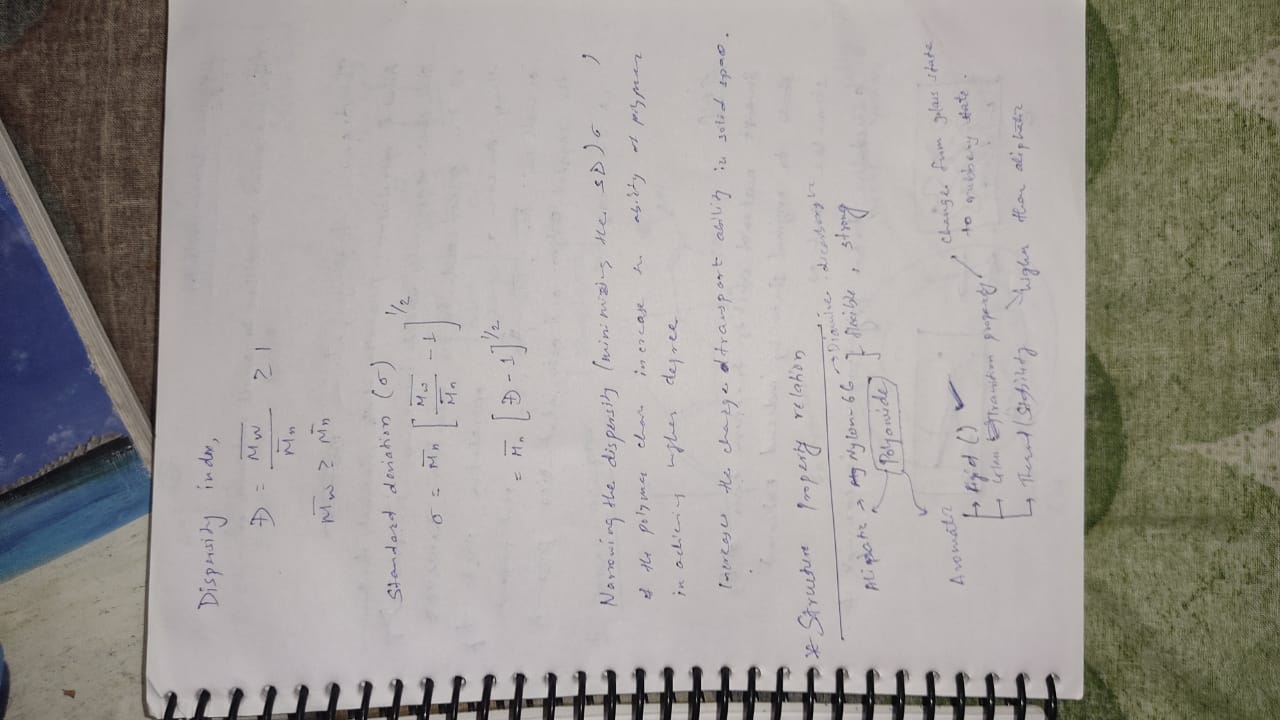 Dispersity index,
Đ = M̄w / M̄n ≥ 1
M̄w ≥ M̄n
Standard deviation (σ)
σ = M̄n [ M̄w / M̄n - 1 ]^1/2
= M̄n [Đ - 1]^1/2
Narrowing the dispersity (minimizing the SD) σ ,
of the polymer chain increase the ability of polymer
in achieving higher degree
Increases the charge transport ability in solid space.
* Structure Property relation
→ Diamine dicarboxylic
Aliphatic → Nylon-66 } flexible, strong
Polyamide
Aromatic
→ Rigid () ✓
→ Glass Transition property → changes from glass state
to rubbery state.
→ Thermal Stability → higher than aliphatic